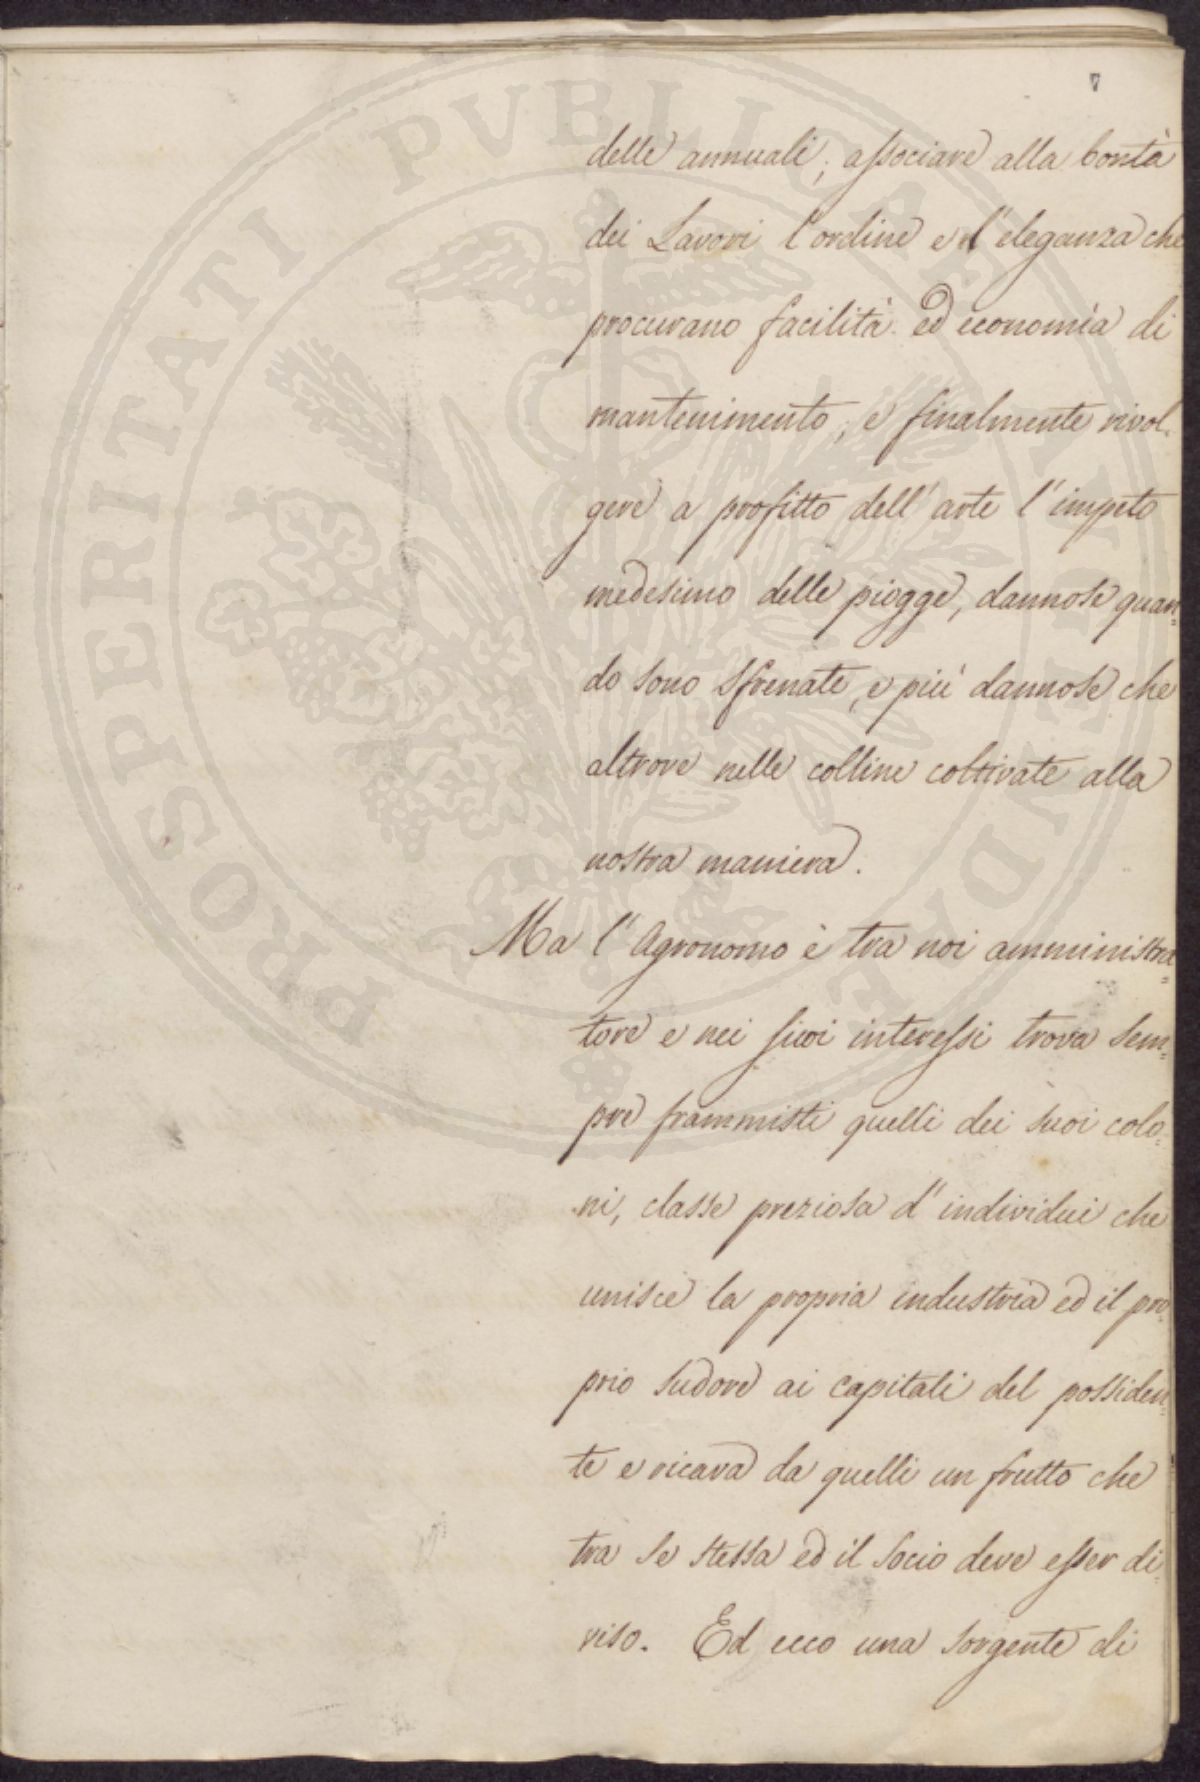 7
delle annuali; associare alla bontà
dei Lavori l'ordine e l'eleganza che
procurano facilità ed economìa di
mantenimento; e finalmente rivol-
gere a profitto dell'arte l'impeto
medesimo delle piogge, dannose quan=
do sono sfrenate, e più dannose che
altrove nelle colline coltivate alla
nostra maniera.
Ma l'Agronomo è tra noi amministra=
tore e nei suoi interessi trova sem=
pre frammisti quelli dei suoi colo-
ni, classe preziosa d'individui che
unisce la propria industria ed il pro-
prio sudore ai capitali del possiden=
te e ricava da quelli un frutto che
tra se stessa ed il socio deve esser di-
viso. Ed ecco una sorgente di
PROSPERITATI PVBLICAE PROVEHENDAE